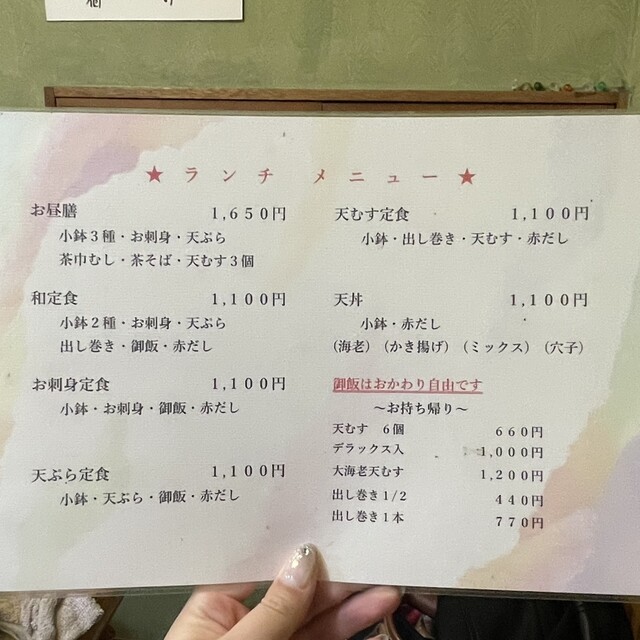 ★ランチ メニュー★
お昼膳 1,650円
小鉢3種・お刺身・天ぷら
茶巾むし・茶そば・天むす3個
和定食 1,100円
小鉢2種・お刺身・天ぷら
出し巻き・御飯・赤だし
お刺身定食 1,100円
小鉢・お刺身・御飯・赤だし
天ぷら定食 1,100円
小鉢・天ぷら・御飯・赤だし
天むす定食 1,100円
小鉢・出し巻き・天むす・赤だし
天丼 1,100円
小鉢・赤だし
(海老)(かき揚げ)(ミックス)(穴子)
御飯はおかわり自由です
～お持ち帰り～
天むす 6個 660円
デラックス入 1,000円
大海老天むす 1,200円
出し巻き1/2 440円
出し巻き1本 770円